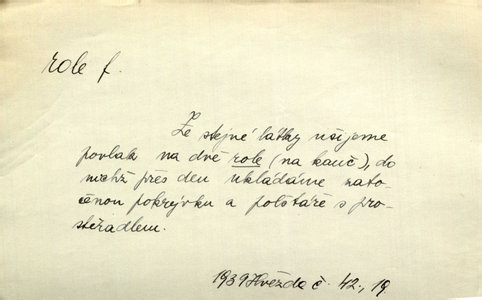 role f.
Ze stejné látky ušijeme
povlak na dvě role (na kauč), do
nichž přes den ukládáme nato-
čenou pokrývku a polštáře s pro-
stěradlem.
1939 Hvězda č. 42., 19